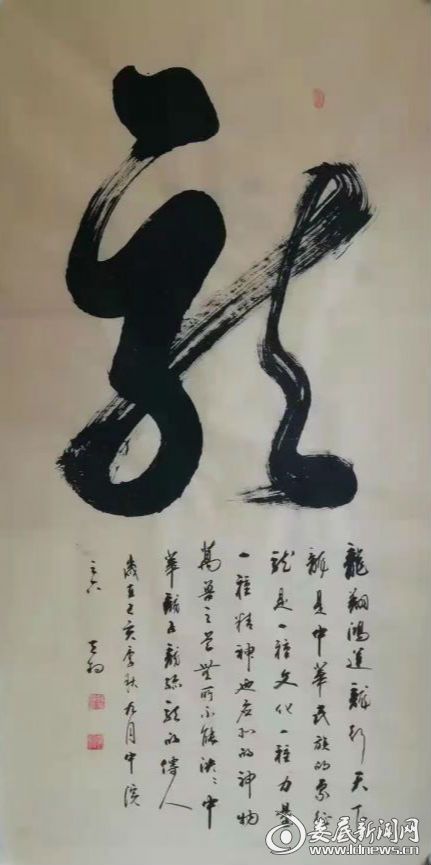 龍
龍翔鴻運龍行天下
龍是中華民族的象徵
龍是一種文化一種力量
一種精神也是
的神物
萬獸之首無所不能泱泱中
華龍的龍的傳人
歲在己亥季秋九月中浣
之六
娄底新闻网
www.ldnews.cn